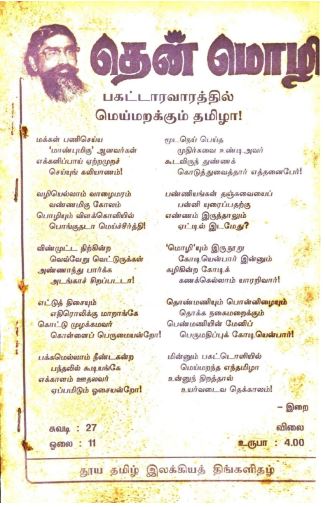 தென் மொழி
பகட்டாரவாரத்தில்
மெய்மறக்கும் தமிழா!
மக்கள் பணிசெய்ய
'மாண்புமிகு' ஆனவர்கள்
எக்களிப்பாய் ஏற்றமுறச்
செய்யுங் களியாணம்!
வழியெல்லாம் வாழைமரம்
வண்ணமிகு கோலம்
பொழியும் விளக்கொளியில்
பொங்குதடா மெய்ச்சிர்த்தி!
விண்முட்ட நிற்கின்ற
வெவ்வேறு வெட்டுருக்கள்
அண்ணாந்து பார்க்க
அடங்காச் சிறப்பாடா!
எட்டுத் திசையும்
எதிரொலிக்கு மாறாங்கே
கொட்டு முழக்கமவர்
கொள்ளைப் பெருமையன்றோ!
பக்கமெலாம் நீண்டகன்ற
பந்தலில் கூடியங்கே
எக்காளம் ஊதலவர்
ஏப்பமிடும் ஓசையன்றோ!
மூடநெய் பெய்த
முதிர்சுவை உண்டிஅவர்
கூடவிருந் துண்ணக்
கொடுத்துவைத்தார் எத்தனைபேர்!
பண்ணியங்கள் தஞ்சுவையைப்
பன்னி யுரைப்பதற்கு
எண்ணம் இருந்தாலும்
ஏட்டில் இடமேது?
'மொழி'யும் இருநூறு
கோடியென்பார் இன்னும்
கழிகின்ற கோடிக்
கணக்கெல்லாம் யாரறிவார்!
தொண்மணியும் பொன்னிழையும்
தொக்க நகைமறைக்கும்
பெண்மணியின் மேனிப்
பெருமதிப்புக் கோடியென்பார்!
மின்னும் பகட்டொளியில்
மெய்மறந்த எந்தமிழா
உன்னுந் திறத்தால்
உயர்வடைவ தெக்காலம்!
– இறை
சுவடி : 27
விலை
ஓலை : 11
உருபா : 4.00
தூய தமிழ் இலக்கியத் திங்களிதழ்